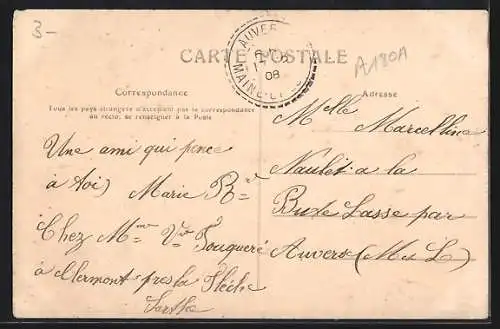 3-
AUVER
MAINE-ET-
08
CARTE POSTALE
A180A
Correspondance
Tous les pays étrangers n'acceptant pas la correspondance
au recto, se renseigner à la Poste
Adresse
Une ami qui pence
à toi) Marie R=
Chez Mme Vve Fouqueré
à Clermont pres la Flêche
Sarthe
Melle Marcelline
Naulet a la
Bute Lasse par
Auvers (M et L)